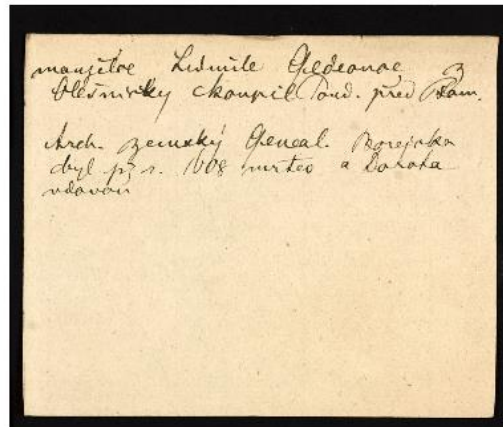 manželce Lidmile Gedeonové z
Olešničky skoupil Pond. před
Arch. zemský Geneal. Borejska
byl již r. 1608 mrtev a Dorota
vdovou